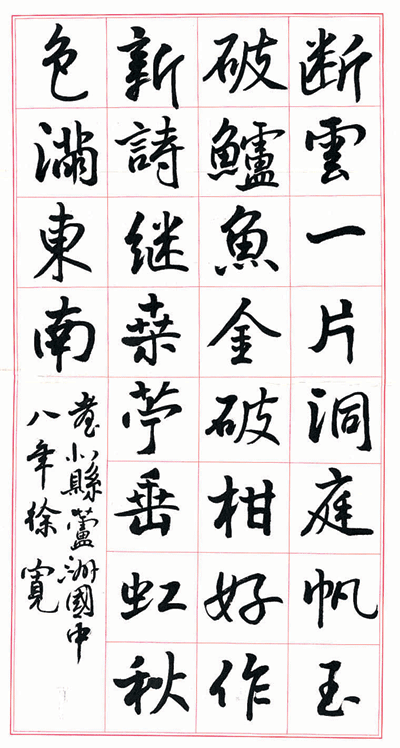 断雲一片洞庭帆玉
破鱸魚金破柑好作
新詩继桒苧垂虹秋
色滿東南
臺北縣蘆洲國中
八年徐寬